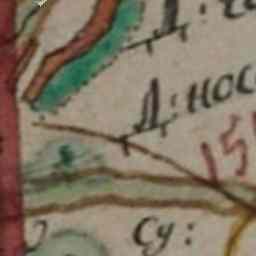 Д:
Д: нос
15
Су: